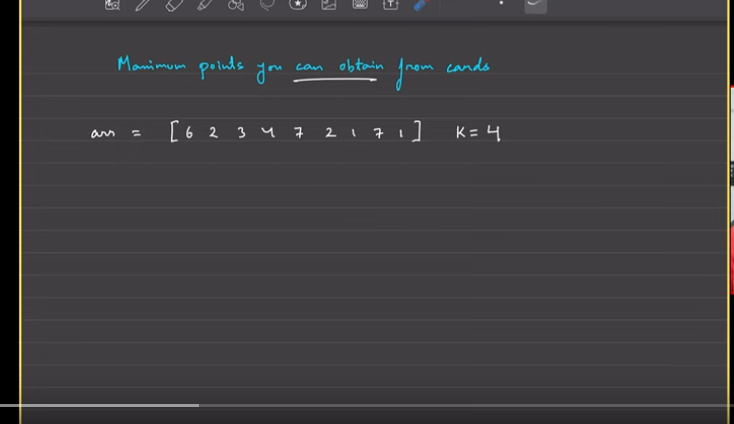 Maximum points you can obtain from cards
arr = [6 2 3 4 7 2 1 7 1] K = 4